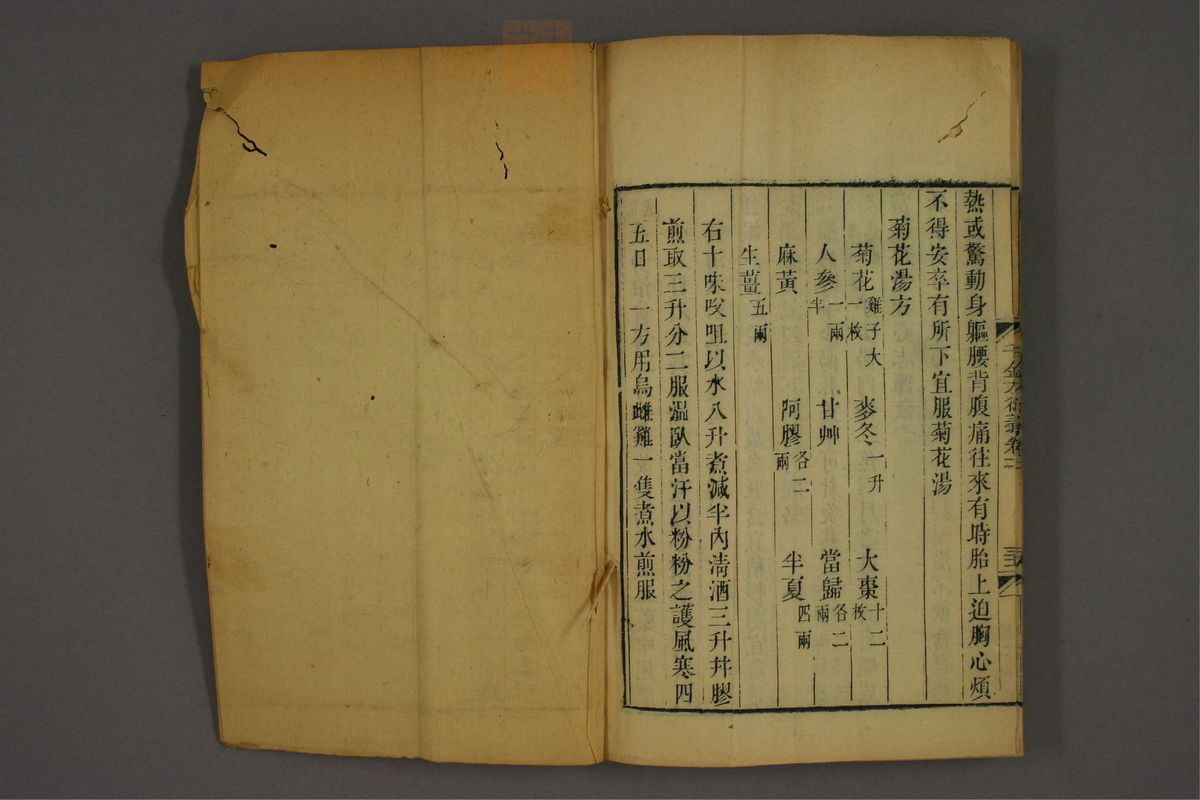 熱或驚動身軀腰背腹痛往來有時胎上迫胸心煩
不得安卒有所下宜服菊花湯
菊花湯方
菊花雞子大一枚 麥冬一升 大棗十二枚
人參一兩半 甘艸 當歸各二兩
麻黃 阿膠各二兩 半夏四兩
生薑五兩
右十味㕮咀以水八升煮減半內淸酒三升幷膠
煎取三升分二服溫臥當汗以粉粉之護風寒四
五日一方用烏雌雞一隻煮水煎服
千金方衍義卷二